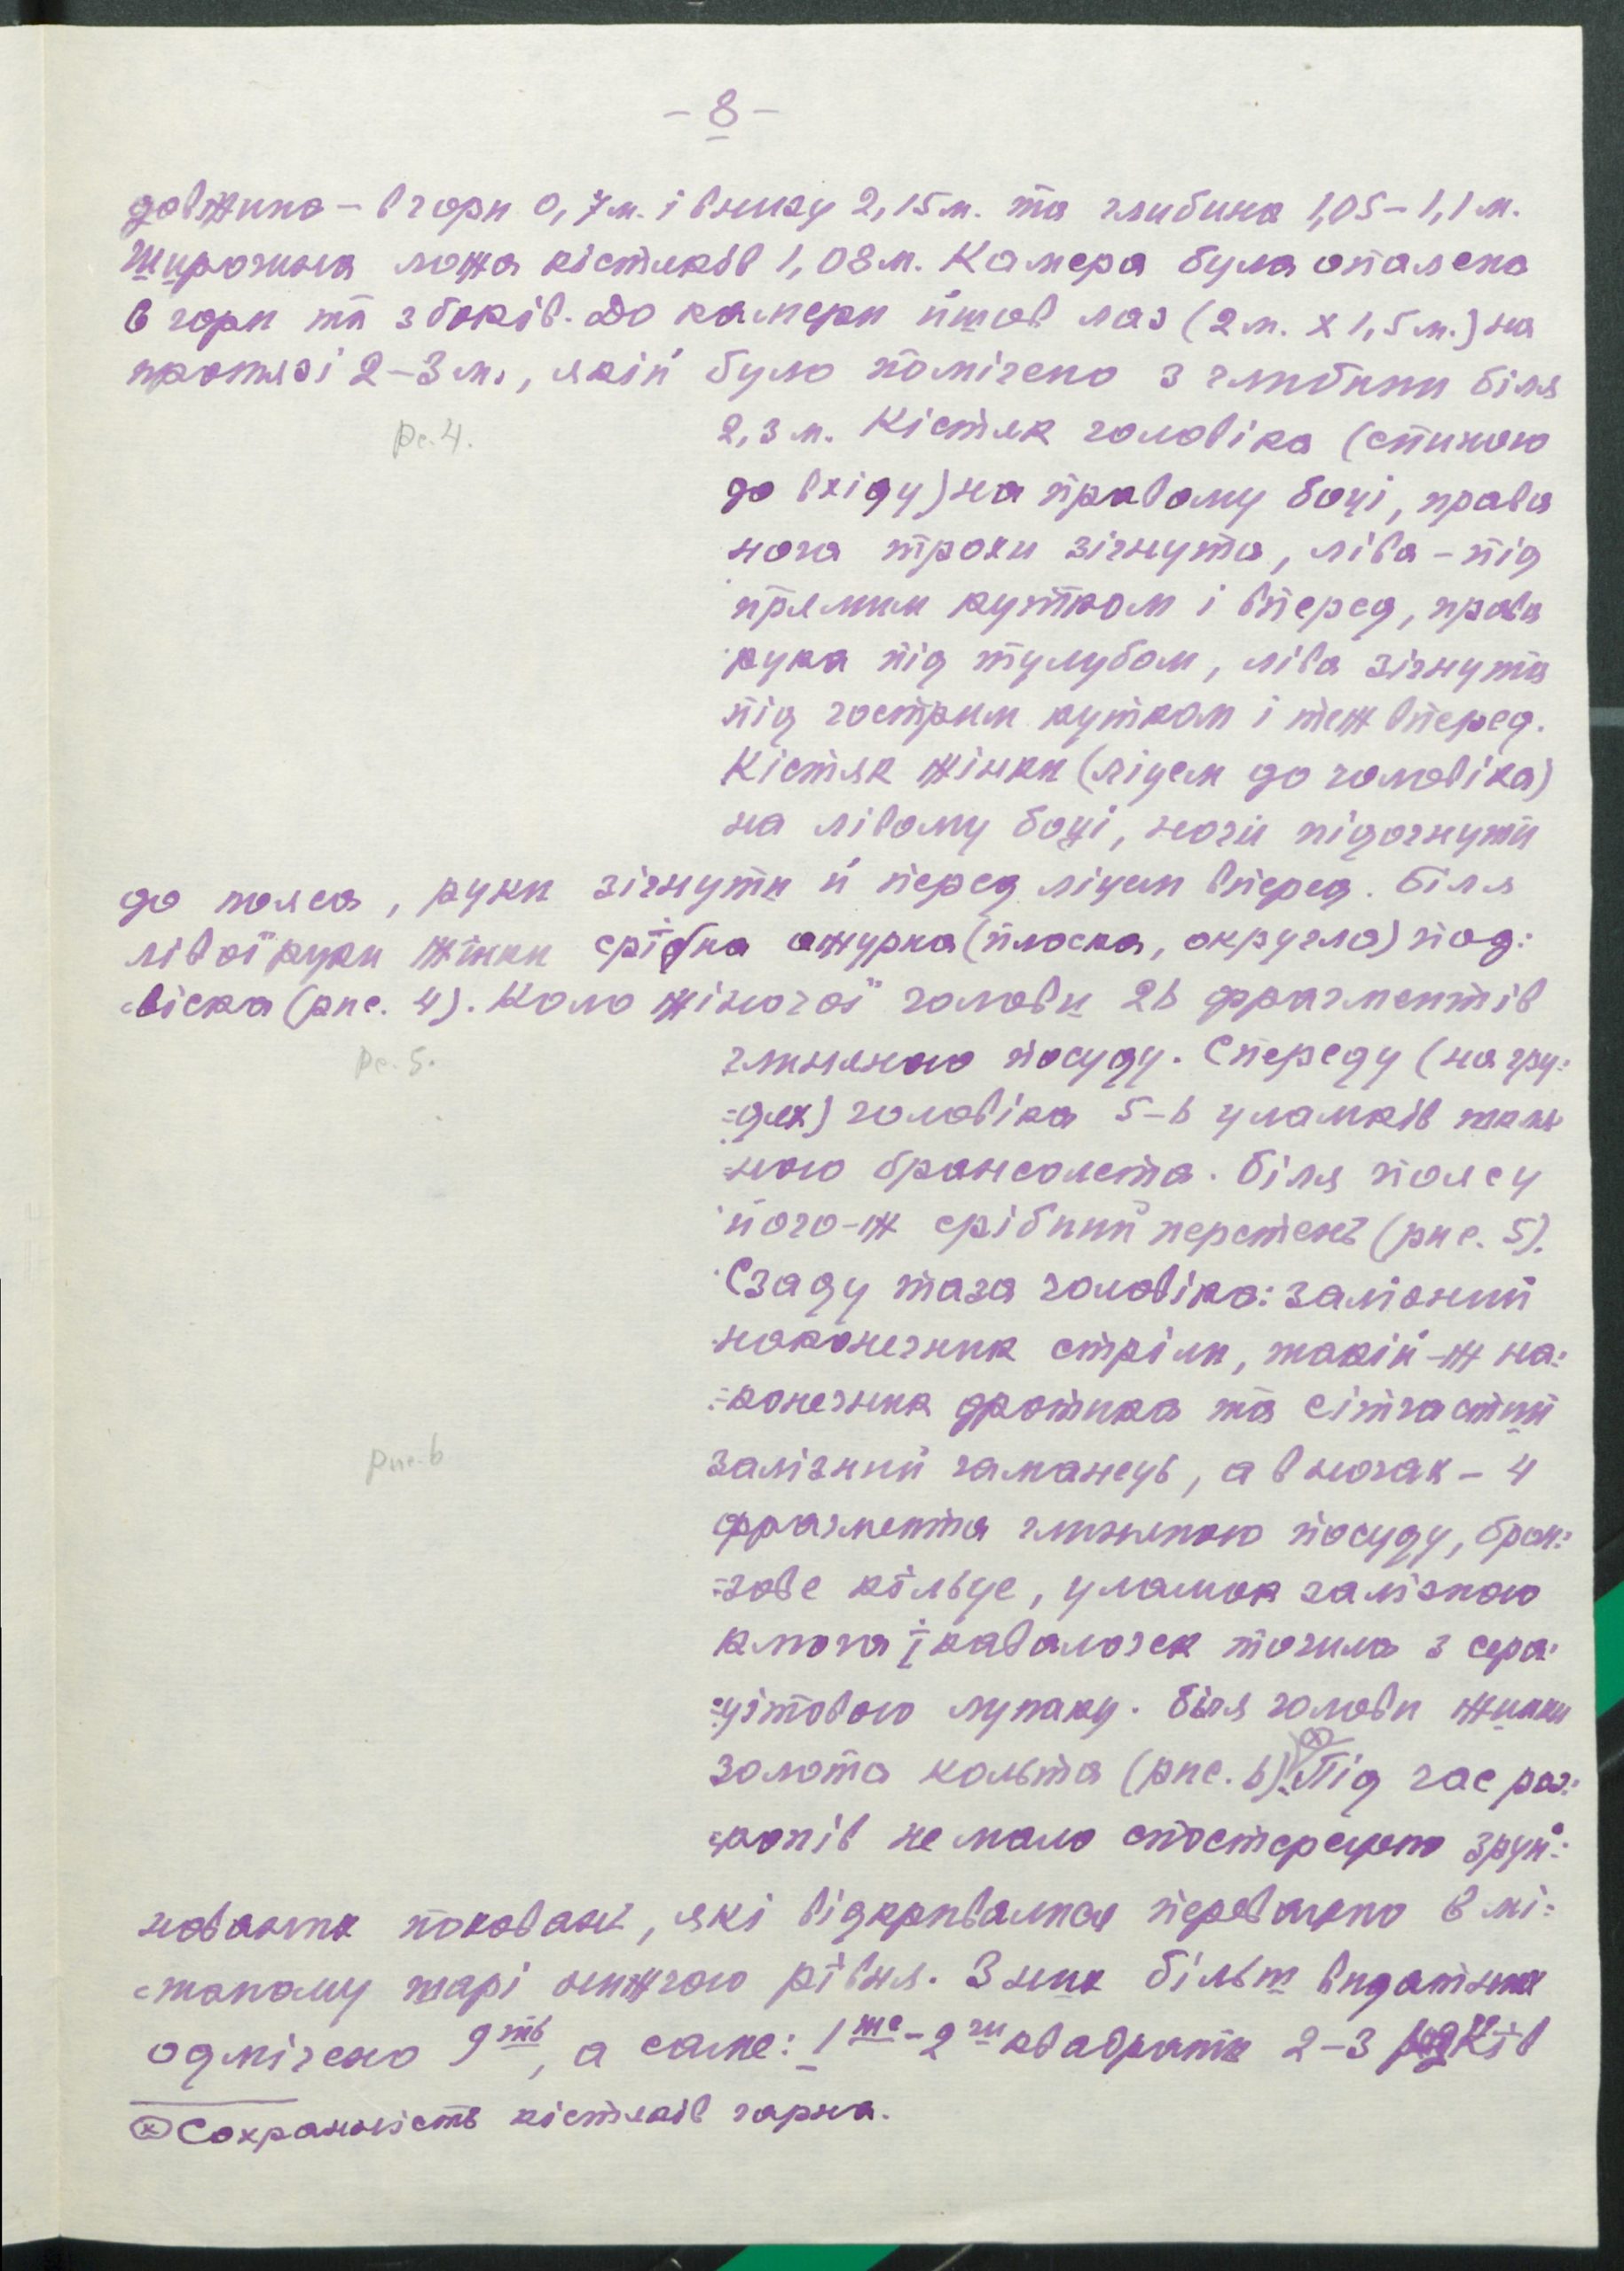 - 8 -
довжина – вгори 0,7 м. і внизу 2,15 м. та глибина 1,05 – 1,1 м.
Широчина ложа кістяків 1,08 м. Камера була опалена
в гори та з боків. До камери йшов лаз (2 м. х 1,5 м.) на
протязі 2–3 м., якій було помічено з глибини біля
рс. 4.
2,3 м. Кістяк чоловіка (спиною
до вхіду) на правому боці, права
нога трохи зігнута, ліва – під
прямим кутком і вперед, права
рука під тулубом, ліва зігнута
під гострим кутком і теж вперед.
Кістяк жінки (ліцем до чоловіка)
на лівому боці, ноги підогнути
до пояса, руки зігнути й перед ліцем вперед. Біля
лівої руки жінки срібна ажурна (плоска, округла) под:
:віска (рис. 4). Коло жіночої голови 26 фрагментів
рс. 5.
глиняного посуду. Спереду (на гру:
:дях) чоловіка 5–6 уламків скля
ного брансолета. Біля поясу
його-ж срібний перстень (рис. 5).
Сзаду таза чоловіка: залізний
наконечник стріли, такій-ж на:
:конечник дротика та сітчастий
рис. 6
залізний гаманець, а в ногах – 4
фрагмента глиняного посуду, брон:
:зове кільце, уламок залізного
ключа і кавалочек точила з сера:
:цітового лупаку. Біля голови жинки
золота кольта (рис. 6).⊗ Під час роз:
:копів не мало спостережено зруй:
нованих поховань, які відкривалися переважно в мі:
:шаному шарі нижчого рівня. З них більш видатних
одмічено 9ть, а саме: 1ше – 2ги квадрати 2–3
⊗ Сохранність кістяків гарна.